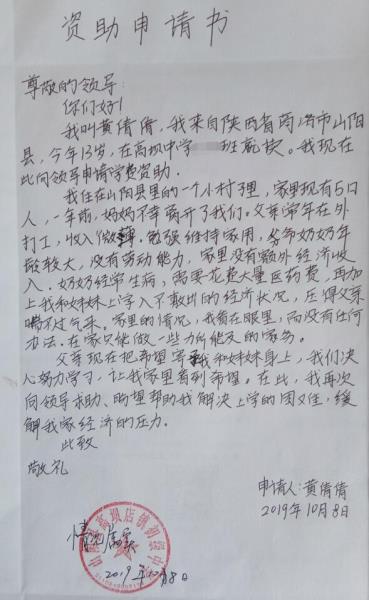 资助申请书
尊敬的领导:
你们好!
我叫黄倩倩,我来自陕西省商洛市山阳
县,今年13岁,在高坝中学 班就读。我现在
此向领导申请学费资助.
我住在山阳县里的一个小村理,家里现有5口
人,一年前,妈妈不幸离开了我们。父亲常年在外
打工,收入微薄.勉强维持家用,爷爷奶奶年
龄较大,没有劳动能力,家里没有额外经济收
入.奶奶经常生病,需要花费大量医药费,再加
上我和妹妹上学入不敷出的经济状况,压得父亲
喘不过气来。家里的情况,我看在眼里,而没有任何
办法.在家只能做一些力所能及的家务。
父亲现在把希望寄我和妹妹身上,我们决
心努力学习,让我家里看到希望。在此,我再次
向领导求助、盼望帮助我解决上学的困难,缓
解我家经济的压力.
此致
敬礼
申请人:黄倩倩
2019年10月8日
情况属实
高坝店镇初级中
2019年10月8日